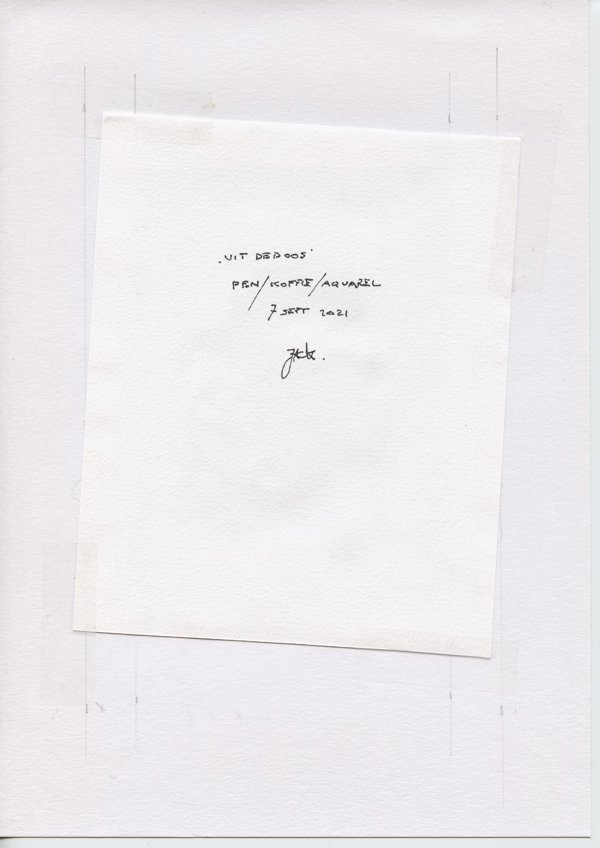 'UIT DE DOOS'
PEN/KOFFIE/AQUAREL
7 SEPT 2021